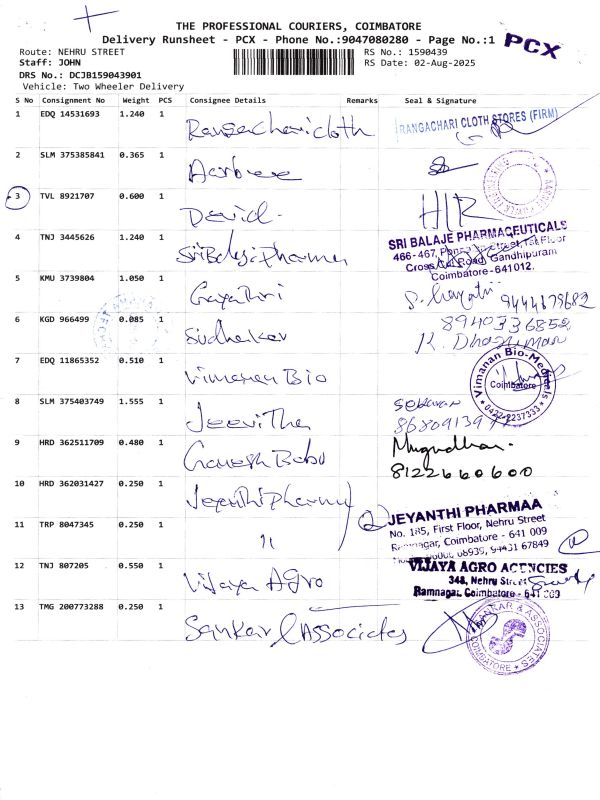 THE PROFESSIONAL COURIERS, COIMBATORE
Delivery Runsheet - PCX - Phone No.:9047080280 - Page No.:1
PCX
Route: NEHRU STREET
RS No.: 1590439
Staff: JOHN
RS Date: 02-Aug-2025
DRS No.: DCJB159043901
Vehicle: Two Wheeler Delivery
S No Consignment No Weight PCS Consignee Details Remarks Seal & Signature
1 EDQ 14531693 1.240 1
Rangachari cloth
RANGACHARI CLOTH STORES (FIRM)
2 SLM 375385841 0.365 1
3 TVL 8921707 0.600 1
David
H/R
4 TNJ 3445626 1.240 1
Sri Balaji Pharma
SRI BALAJE PHARMACEUTICALS
466-467, Street, 1st Floor
Cross Cut Road, Gandhipuram
Coimbatore-641012.
5 KMU 3739804 1.050 1
Gayathri
S. Gayatri 9444679682
6 KGD 966499 0.085 1
Sudhakar
8940336852
K. Dhanuman
7 EDQ 11865352 0.510 1
Vimanan Bio
Vimanan Bio-Medicals
Coimbatore
0422-2237333
8 SLM 375403749 1.555 1
Jeevitha
9 HRD 362511709 0.480 1
Ganesh Babu
8122660600
10 HRD 362031427 0.250 1
Jeyanthi Pharmy
2 JEYANTHI PHARMAA
No. 185, First Floor, Nehru Street
Ramnagar, Coimbatore - 641 009
94431 67849
11 TRP 8047345 0.250 1
"
12 TNJ 807205 0.550 1
Vijaya Agro
VIJAYA AGRO AGENCIES
348, Nehru Street
Ramnagar, Coimbatore - 641 009
13 TMG 200773288 0.250 1
Sankar & Associates
SANKAR & ASSOCIATES
COIMBATORE